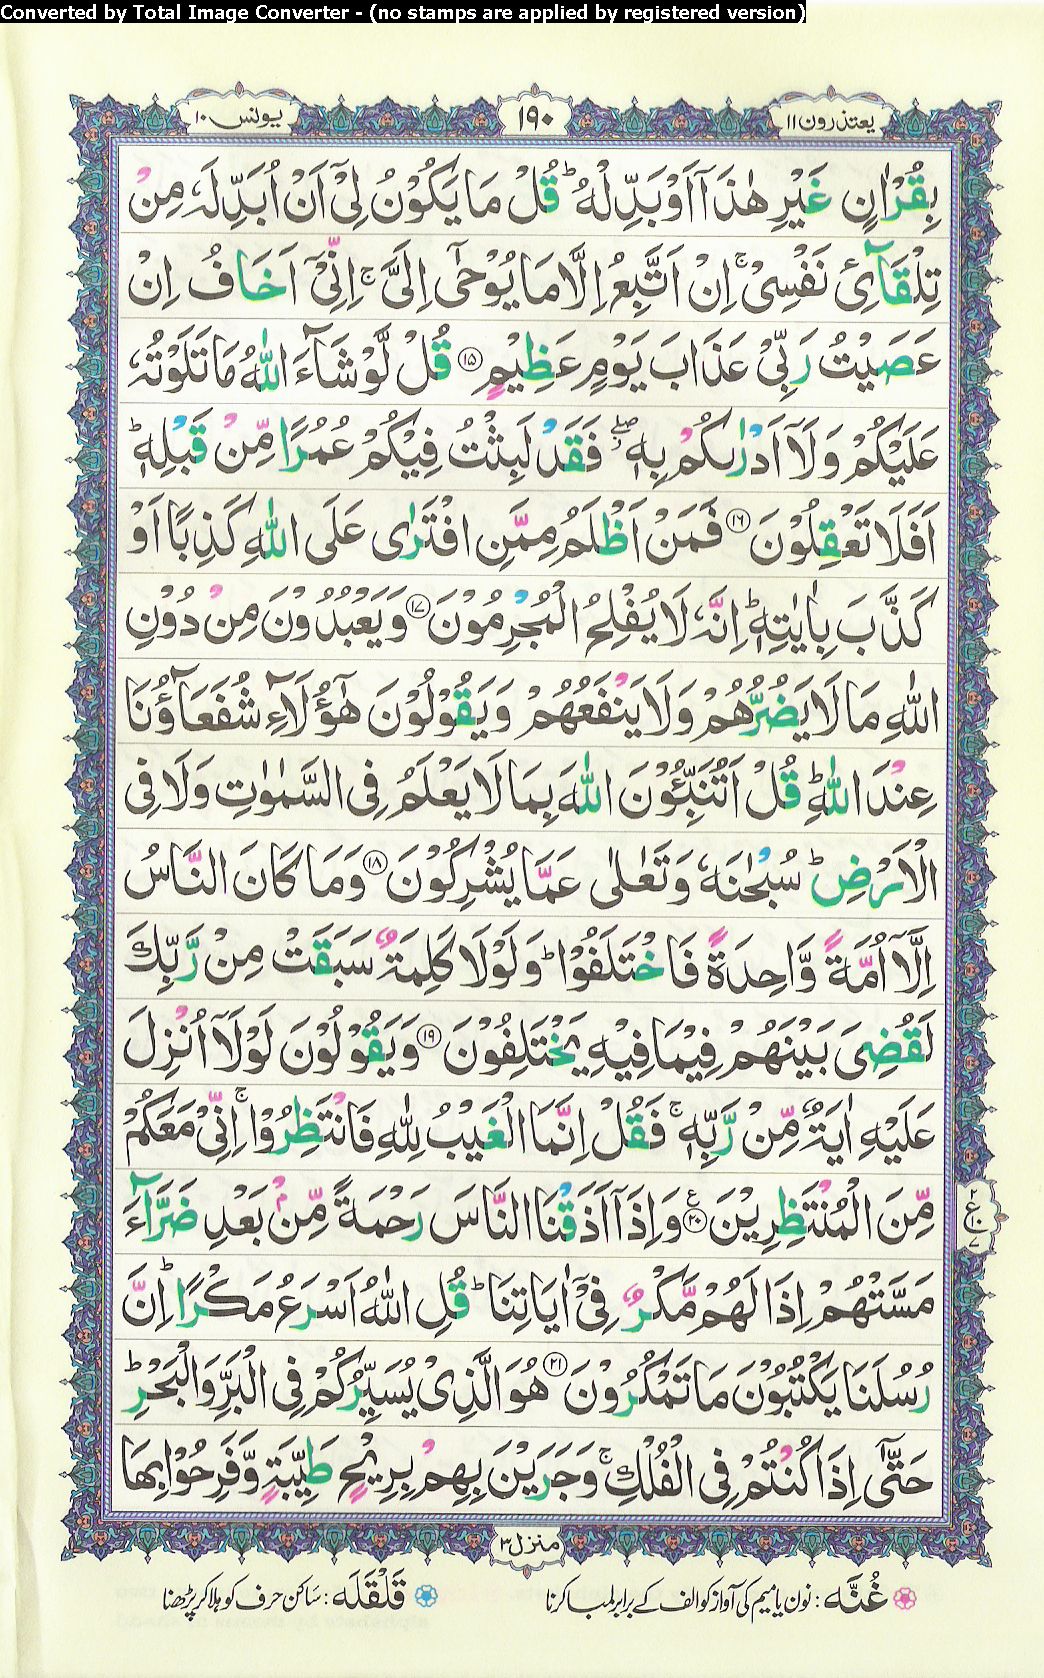 Converted by Total Image Converter - (no stamps are applied by registered version)
یعتذرون ۱۱
۱۹۰
یونس ۱۰
بِقُرْاٰنٍ غَیْرِ هٰذَاۤ اَوْ بَدِّلْهُ ؕ قُلْ مَا یَكُوْنُ لِیْۤ اَنْ اُبَدِّلَهٗ مِنْ
تِلْقَآئِ نَفْسِیْ ۚ اِنْ اَتَّبِعُ اِلَّا مَا یُوْحٰۤی اِلَیَّ ۚ اِنِّیْۤ اَخَافُ اِنْ
عَصَیْتُ رَبِّیْ عَذَابَ یَوْمٍ عَظِیْمٍ ⁠۝۱۵ قُلْ لَّوْ شَآءَ اللّٰهُ مَا تَلَوْتُهٗ
عَلَیْكُمْ وَ لَاۤ اَدْرٰىكُمْ بِهٖ ۖؗ فَقَدْ لَبِثْتُ فِیْكُمْ عُمُرًا مِّنْ قَبْلِهٖ ؕ
اَفَلَا تَعْقِلُوْنَ ۝۱۶ فَمَنْ اَظْلَمُ مِمَّنِ افْتَرٰی عَلَی اللّٰهِ كَذِبًا اَوْ
كَذَّبَ بِاٰیٰتِهٖ ؕ اِنَّهٗ لَا یُفْلِحُ الْمُجْرِمُوْنَ ۝۱۷ وَ یَعْبُدُوْنَ مِنْ دُوْنِ
اللّٰهِ مَا لَا یَضُرُّهُمْ وَ لَا یَنْفَعُهُمْ وَ یَقُوْلُوْنَ هٰۤؤُلَآءِ شُفَعَآؤُنَا
عِنْدَ اللّٰهِ ؕ قُلْ اَتُنَبِّـُٔوْنَ اللّٰهَ بِمَا لَا یَعْلَمُ فِی السَّمٰوٰتِ وَ لَا فِی
الْاَرْضِ ؕ سُبْحٰنَهٗ وَ تَعٰلٰی عَمَّا یُشْرِكُوْنَ ۝۱۸ وَ مَا كَانَ النَّاسُ
اِلَّاۤ اُمَّةً وَّاحِدَةً فَاخْتَلَفُوْا ؕ وَ لَوْ لَا كَلِمَةٌ سَبَقَتْ مِنْ رَّبِّكَ
لَقُضِیَ بَیْنَهُمْ فِیْمَا فِیْهِ یَخْتَلِفُوْنَ ۝۱۹ وَ یَقُوْلُوْنَ لَوْ لَاۤ اُنْزِلَ
عَلَیْهِ اٰیَةٌ مِّنْ رَّبِّهٖ ۚ فَقُلْ اِنَّمَا الْغَیْبُ لِلّٰهِ فَانْتَظِرُوْا ۚ اِنِّیْ مَعَكُمْ
مِّنَ الْمُنْتَظِرِیْنَ ۝۲۰ ع وَ اِذَاۤ اَذَقْنَا النَّاسَ رَحْمَةً مِّنْ بَعْدِ ضَرَّآءَ
۲ ع ۱۰ ۷
مَسَّتْهُمْ اِذَا لَهُمْ مَّكْرٌ فِیْۤ اٰیَاتِنَا ؕ قُلِ اللّٰهُ اَسْرَعُ مَكْرًا ؕ اِنَّ
رُسُلَنَا یَكْتُبُوْنَ مَا تَمْكُرُوْنَ ۝۲۱ هُوَ الَّذِیْ یُسَیِّرُكُمْ فِی الْبَرِّ وَ الْبَحْرِ ؕ
حَتّٰۤی اِذَا كُنْتُمْ فِی الْفُلْكِ ۚ وَ جَرَیْنَ بِهِمْ بِرِیْحٍ طَیِّبَةٍ وَّ فَرِحُوْا بِهَا
منزل ۳
غُنَّه : نون یا میم کی آواز کو الف کے برابر لمبا کرنا
قَلْقَلَه : ساکن حرف کو ہلا کر پڑھنا